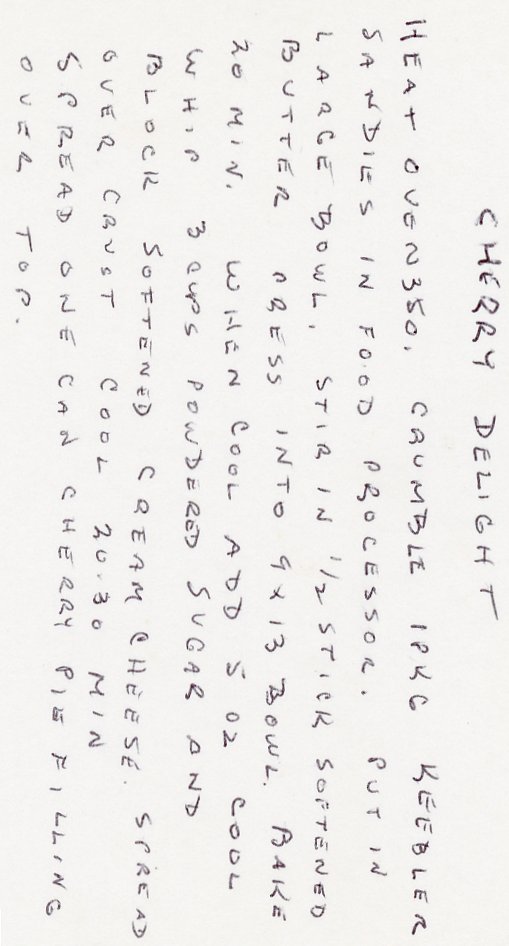 CHERRY DELIGHT
HEAT OVEN 350. CRUMBLE 1 PKG KEEBLER
SANDIES IN FOOD PROCESSOR. PUT IN
LARGE BOWL, STIR IN 1/2 STICK SOFTENED
BUTTER PRESS INTO 9X13 BOWL. BAKE
20 MIN. WHEN COOL ADD 5 OZ COOL
WHIP 3 CUPS POWDERED SUGAR AND
BLOCK SOFTENED CREAM CHEESE. SPREAD
OVER CRUST COOL 20-30 MIN
SPREAD ONE CAN CHERRY PIE FILLING
OVER TOP.